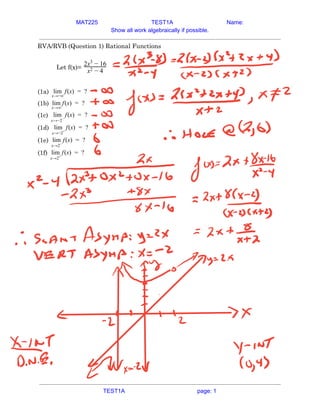 MAT225 TEST1A Name:
Show all work algebraically if possible.
RVA/RVB (Question 1) Rational Functions
Let f(x)= 2x³ − 16 / x² − 4 = 2(x³-8) / x²-4 = 2(x-2)(x²+2x+4) / (x-2)(x+2)
(1a) lim x→-∞ f(x) = ? -∞
(1b) lim x→∞ f(x) = ? +∞
f(x) = 2(x²+2x+4) / x+2 , x≠2
(1c) lim f(x) = ? -∞
(1d) lim f(x) = ? +∞
∴ HOLE @ (2,6)
(1e) lim x→2 f(x) = ? 6
(1f) lim x→2 f(x) = ? 6
2x
f(x) = 2x + 8x-16 / x²-4
x²-4 √ 2x³+0x²+0x-16
-2x³ +8x
8x-16
= 2x + 8(x-2) / (x-2)(x+2)
= 2x + 8 / x+2
∴ SLANT ASYMP: y=2x
VERT ASYMP: x=-2
y
y=2x
-2 2 x
X-INT
D.N.E.
Y-INT
(0,4)
x=-2
TEST1A page: 1